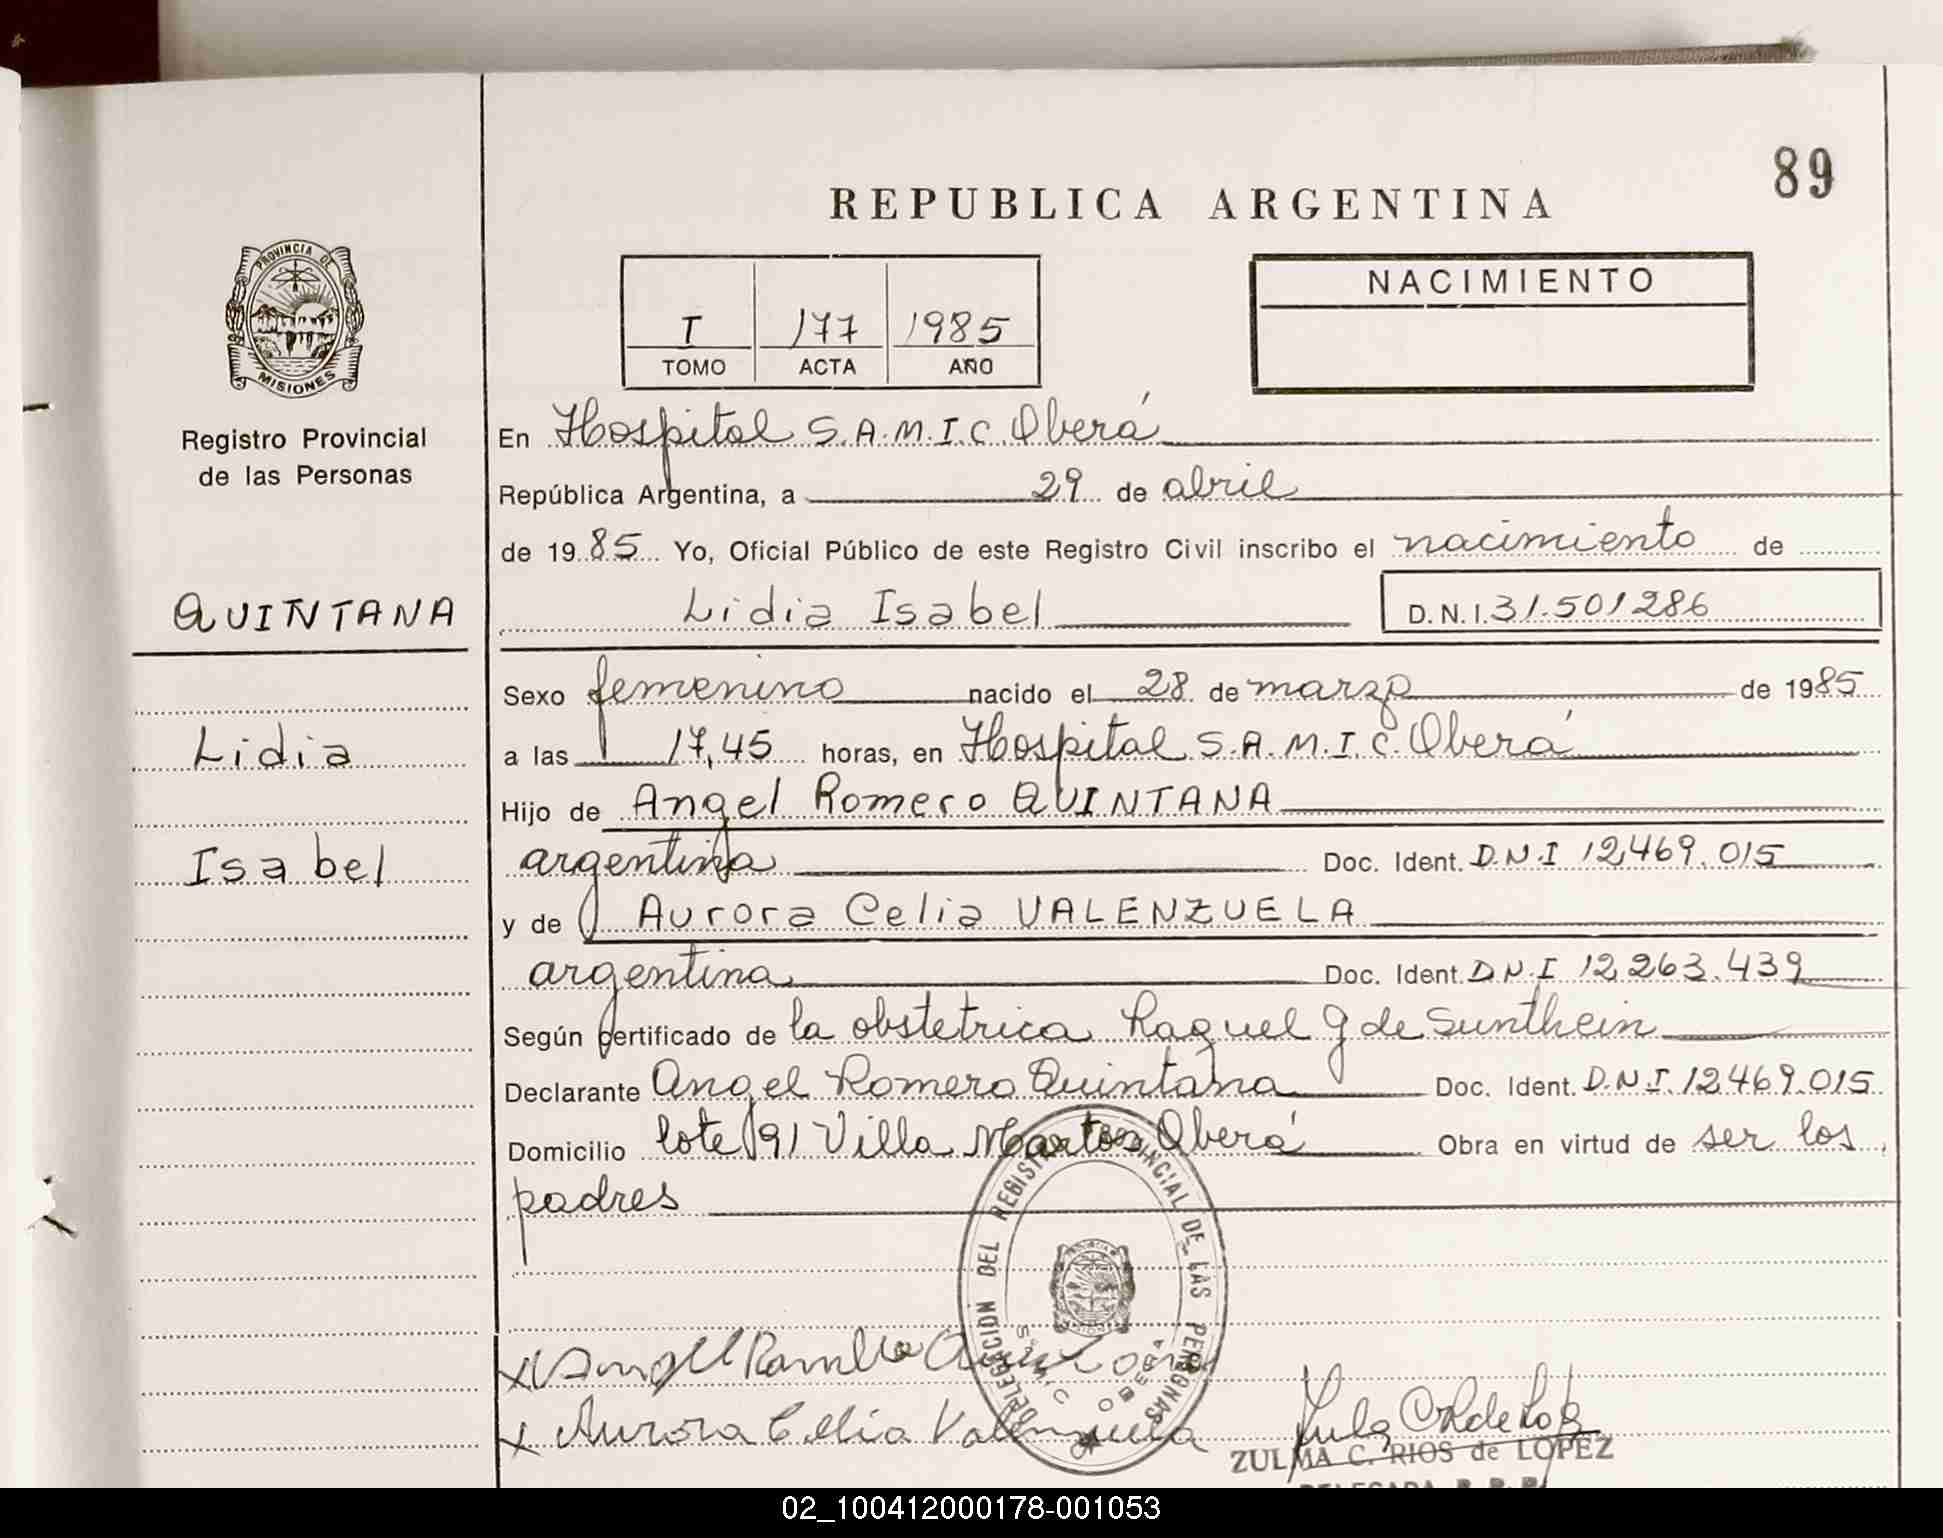 89
REPUBLICA ARGENTINA
PROVINCIA DE
MISIONES
Registro Provincial
de las Personas
QUINTANA
Lidia
Isabel
I 177 1985
TOMO ACTA AÑO
NACIMIENTO
En Hospital S.A.M.I.C. Oberá
República Argentina, a 29 de abril
de 1985 Yo, Oficial Público de este Registro Civil inscribo el nacimiento de
Lidia Isabel D.N.I. 31.501286
Sexo femenino nacido el 28 de marzo de 1985
a las 17,45 horas, en Hospital S.A.M.I.C. Oberá
Hijo de Angel Romero QUINTANA
argentina Doc. Ident. D.N.I 12,469.015
y de Aurora Celia VALENZUELA
argentina Doc. Ident. D.N.I 12,263.439
Según certificado de la obstetrica Raquel G de Sunthein
Declarante Angel Romero Quintana Doc. Ident. D.N.I. 12,469.015
Domicilio lote 91 Villa Martos Oberá Obra en virtud de ser los
padres
DELEGACION DEL REGISTRO PROVINCIAL DE LAS PERSONAS
OBERA
MISIONES
Aurora Celia Valenzuela
ZULMA C. RIOS de LOPEZ
02_100412000178-001053